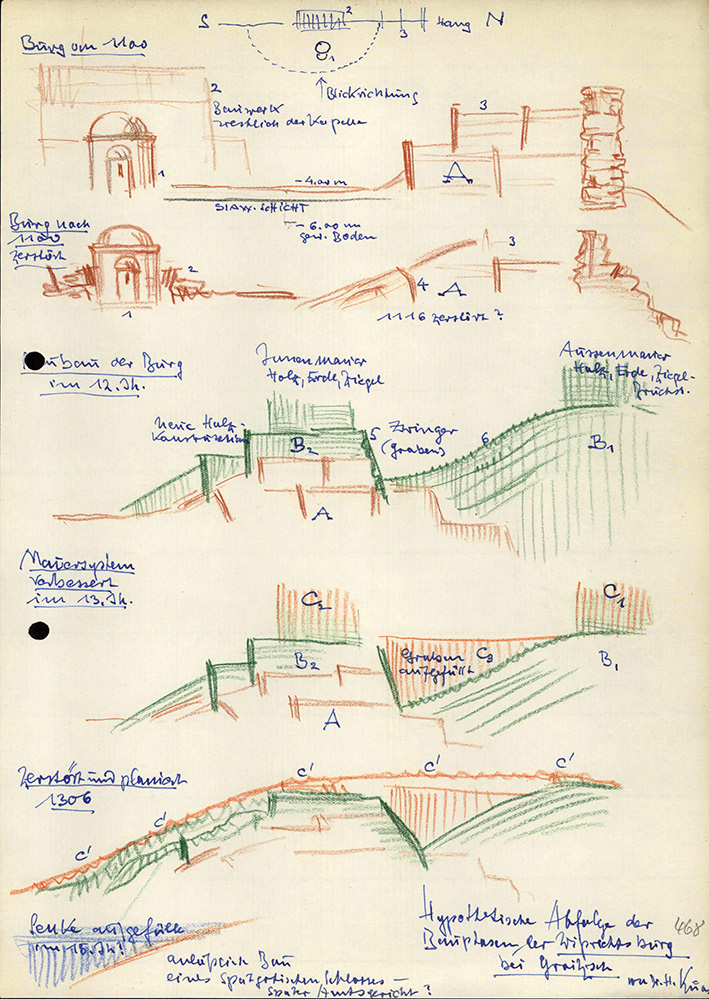 S 2 3 Hang N
1
Burg um 1100
Blickrichtung
2
Bauwerk
westlich der Kapelle
3
1
-4.00 m
A
SLAW. SCHICHT
-6.00 m
gew. Boden
Burg nach
1100
zerstört
2
3
4 A
1
1116 zerstört?
Neubau der Burg
im 12. Jh.
Innenmauer
Holz, Erde, Ziegel
Aussenmauer
Holz, Erde, Ziegel-
Bruchst.
Neue Holz-
Konstruktion
B2
5 Zwinger
(Graben)
6
B1
A
Mauersystem
verbessert
im 13. Jh.
C2
C1
B2
Graben C3
aufgefüllt
B1
A
Zerstört und planiert
1306
C' C' C' C' C'
Senke aufgefüllt
anlässlich Bau
eines Spätgotischen Schlosses –
später Amtsgericht?
Hypothetische Abfolge der
Bauphasen der Wiprechtsburg
bei Groitzsch
468